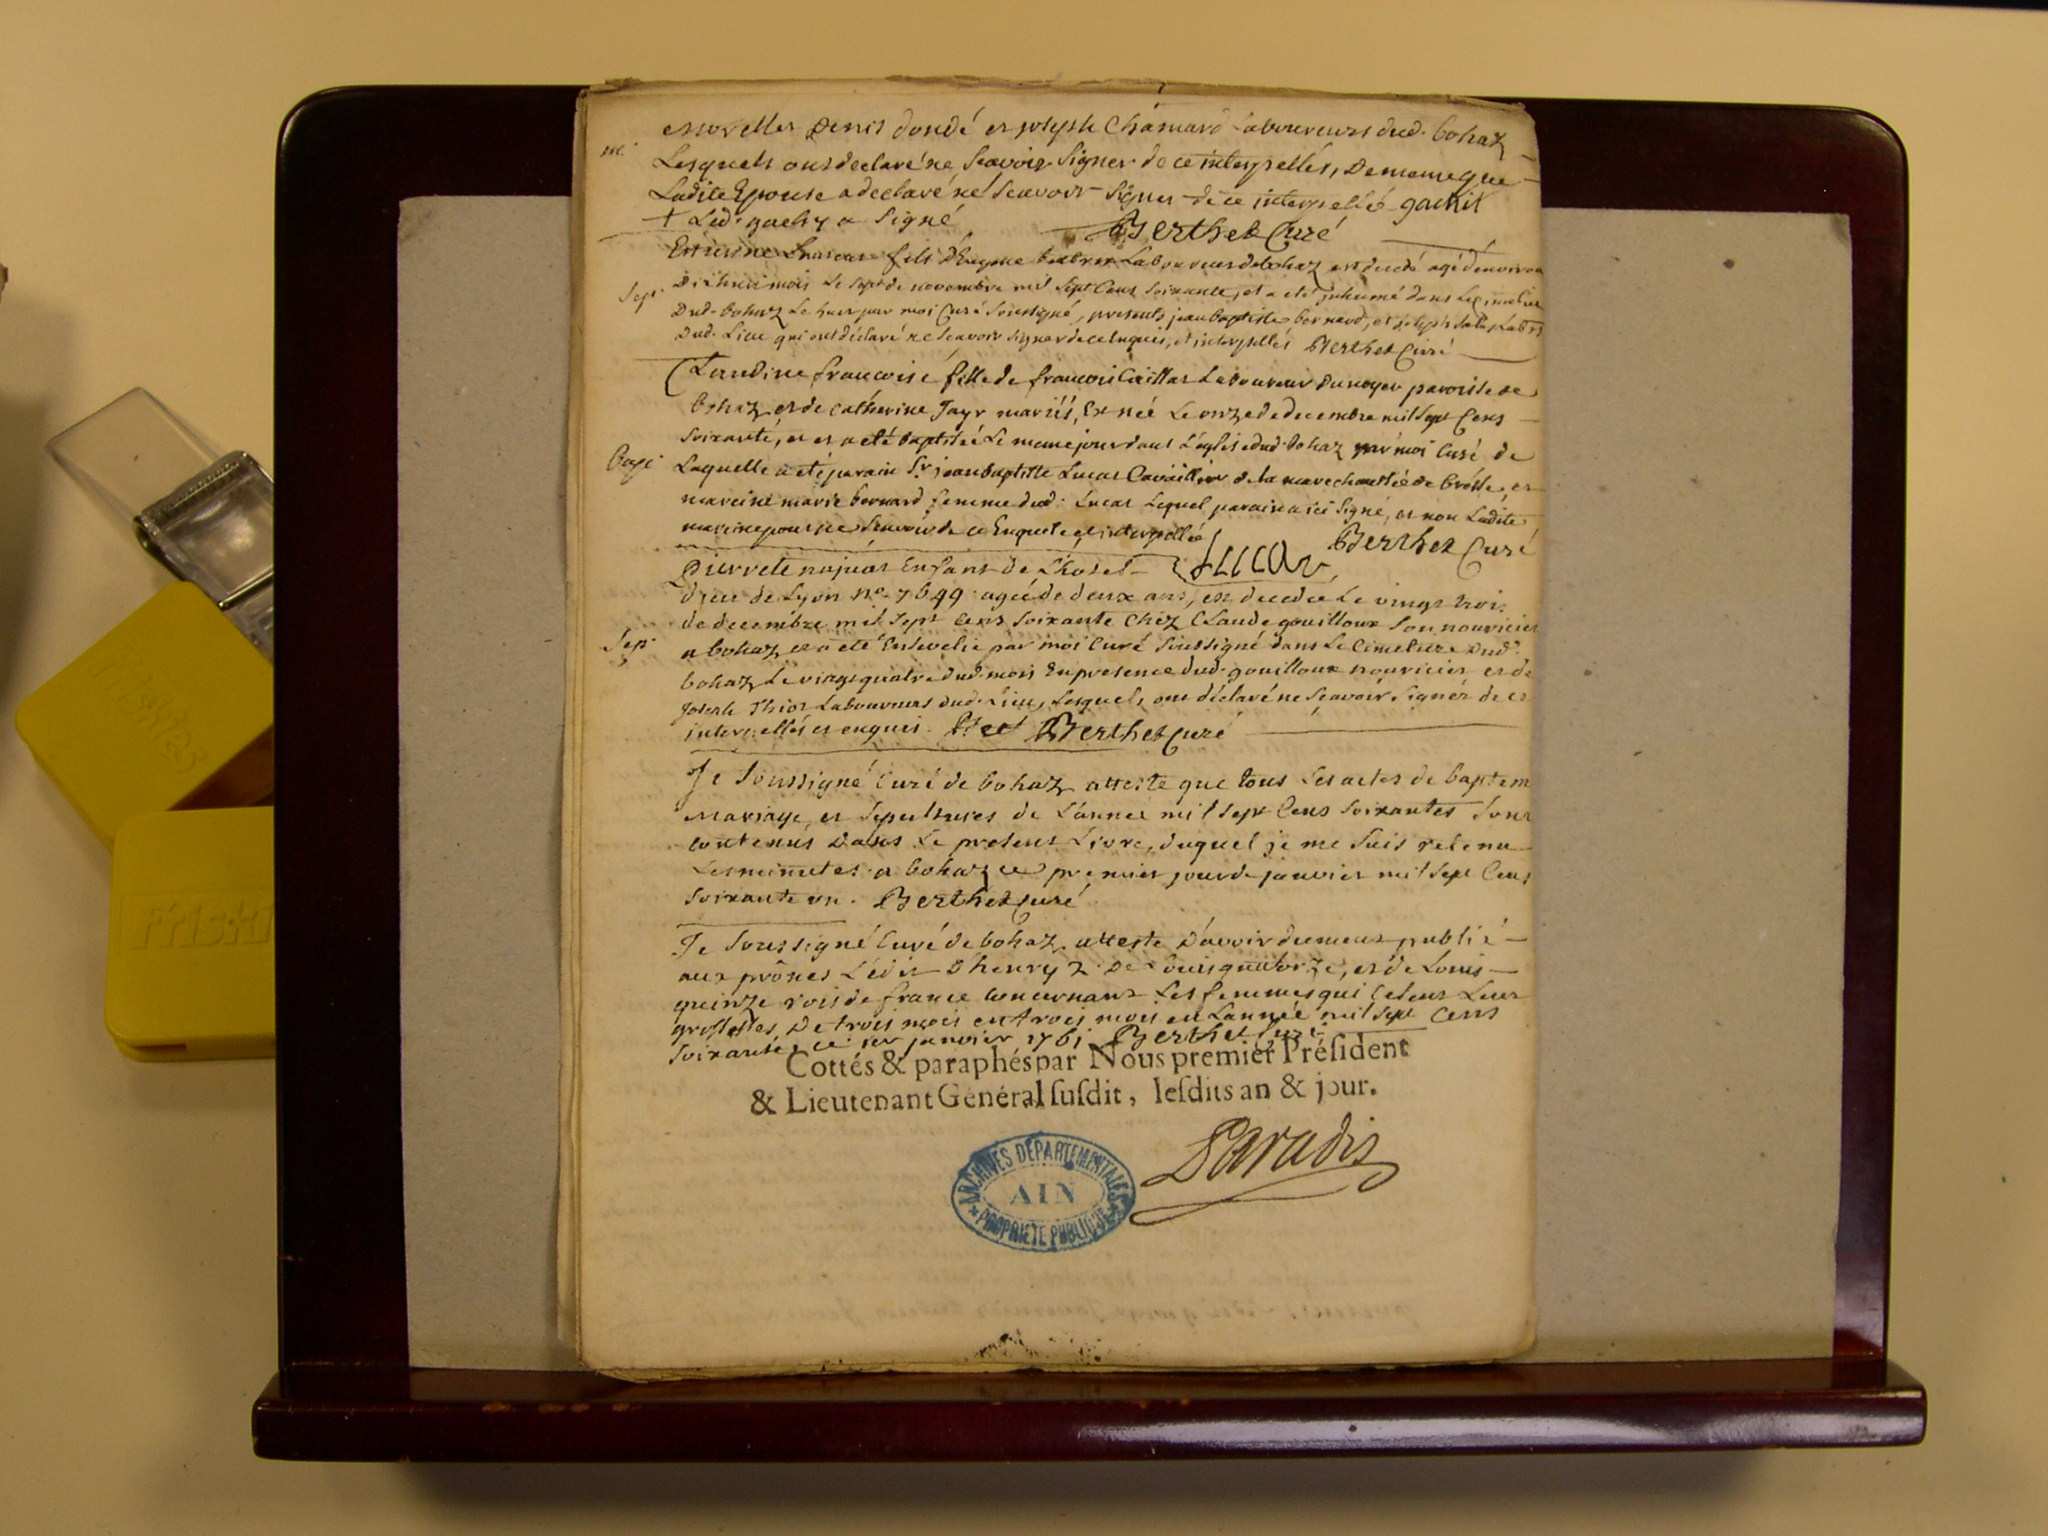 Denis dondé et joseph Chamard Laboureurs dud. bohaz
m.
Lesquels ont declaré ne Scavoir Signer de ce interpellés, De meme que
Ladite Epouse a declaré ne Scavoir Signer de ce interpellé gachit
+ Led. gachy a Signé Berthet Curé
fils Laboureur de bohaz est decedé agé d'environ
Dixhuit mois Le Sept de novembre mil Sept Cens Soixante, et a eté inhumé dans Le Cimetiere
Sep.
Dud. bohaz Le huit par moi Curé Soussigné, presents jean baptiste bernard, et joseph
Dud. Lieu qui ont déclaré ne Scavoir Signer de ce enquis, et interpellés Berthet Curé
Claudine francoise fille de francois Caillat Laboureur Du noyer paroisse de
bohaz et de Catherine Jayr mariés, Est née Le onze de decembre mil Sept Cens
Soixante, et a eté baptisée Le meme jour dans L'eglise dud. bohaz par moi Curé de
Bapt.
Laquelle a eté parain Sr. jean baptiste Lucas Cavaillier de la marechaussée de bresse, et
mareine marie bernard femme dud. Lucas Lequel parain a ici Signé, et non Ladite
mareine pour ne Scavoir de ce Enquise et interpellée
Lucas Berthet Curé
Pierrete Enfant de L'hotel
Dieu de Lyon No. 7649 agée de deux ans, est decedée Le vingt trois
de decembre mil Sept Cens Soixante Chez Claude gouilloux Son nouricier
Sep.
a bohaz et a eté Ensevelie par moi Curé Soussigné dans Le Cimetiere Dud.
bohaz Le vingt quatre dud. mois En presence dud. gouilloux nouricier et de
Joseph Thior Laboureurs dud. Lieu, Lesquels ont déclaré ne Scavoir Signer de ce
interpellés et enquis. Berthet Curé
Je Soussigné Curé de bohaz atteste que tous Les actes de baptem
Mariage, et Sepultures de L'année mil Sept Cens Soixantes Sont
contenus Dans Le present Livre, duquel je me Suis retenu
Les minutes a bohaz ce premier jour de janvier mil Sept Cens
Soixante un. Berthet Curé
Je Soussigné Curé de bohaz atteste D'avoir duement publié
aux prônes L'édit D'henry 2. De Louis quatorze, et de Louis
quinze rois de france concernant Les femmes qui Celent Leur
grossesses, De trois mois en trois mois en L'année mil Sept Cens
Soixante, ce 1er janvier 1761 Berthet Curé
Cottés & paraphés par Nous premier Préſident
& Lieutenant Général ſuſdit, leſdits an & jour.
Paradis
ARCHIVES DÉPARTEMENTALES
AIN
PROPRIÉTÉ PUBLIQUE